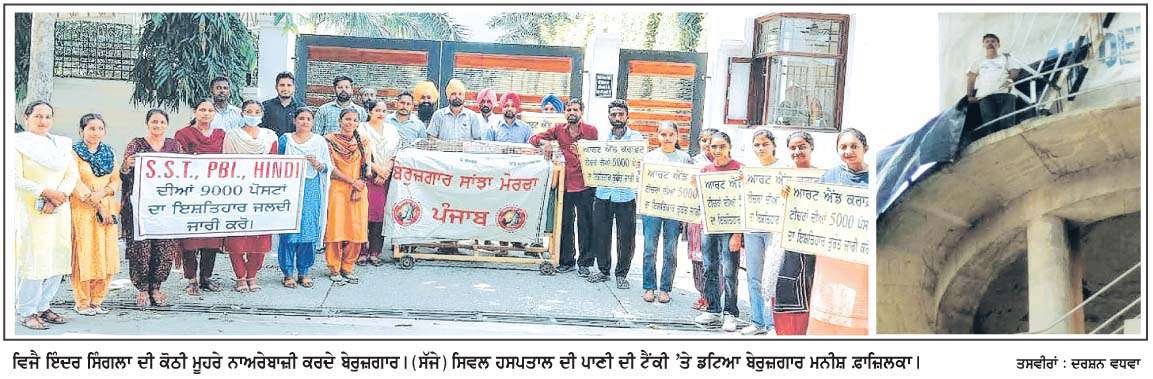 S.S.T., PBI., HINDI
ਦੀਆਂ 9000 ਪੋਸਟਾਂ
ਦਾ ਇਸ਼ਤਿਹਾਰ ਜਲਦੀ
ਜਾਰੀ ਕਰੋ।
ਬੇਰੁਜ਼ਗਾਰ ਸਾਂਝਾ ਮੋਰਚਾ
ਪੰਜਾਬ
ਆਰਟ ਐਂਡ ਕਰਾਫਟ
ਟੀਚਰਾਂ ਦੀਆਂ 5000
ਆਰਟ ਐਂਡ
ਟੀਚਰਾਂ ਦੀਆਂ
ਦਾ ਇਸ਼ਤਿਹਾਰ
ਆਰਟ ਐਂਡ ਕਰਾਫ
ਟੀਚਰਾਂ ਦੀਆਂ 5000 ਪੋ
ਦਾ ਇਸ਼ਤਿਹਾਰ ਤੁਰੰਤ ਜਾਰੀ ਕਰੋ
ਵਿਜੈ ਇੰਦਰ ਸਿੰਗਲਾ ਦੀ ਕੋਠੀ ਮੂਹਰੇ ਨਾਅਰੇਬਾਜ਼ੀ ਕਰਦੇ ਬੇਰੁਜ਼ਗਾਰ। (ਸੱਜੇ) ਸਿਵਲ ਹਸਪਤਾਲ ਦੀ ਪਾਣੀ ਦੀ ਟੈਂਕੀ ’ਤੇ ਡਟਿਆ ਬੇਰੁਜ਼ਗਾਰ ਮਨੀਸ਼ ਫ਼ਾਜ਼ਿਲਕਾ।
ਤਸਵੀਰਾਂ : ਦਰਸ਼ਨ ਵਧਵਾ